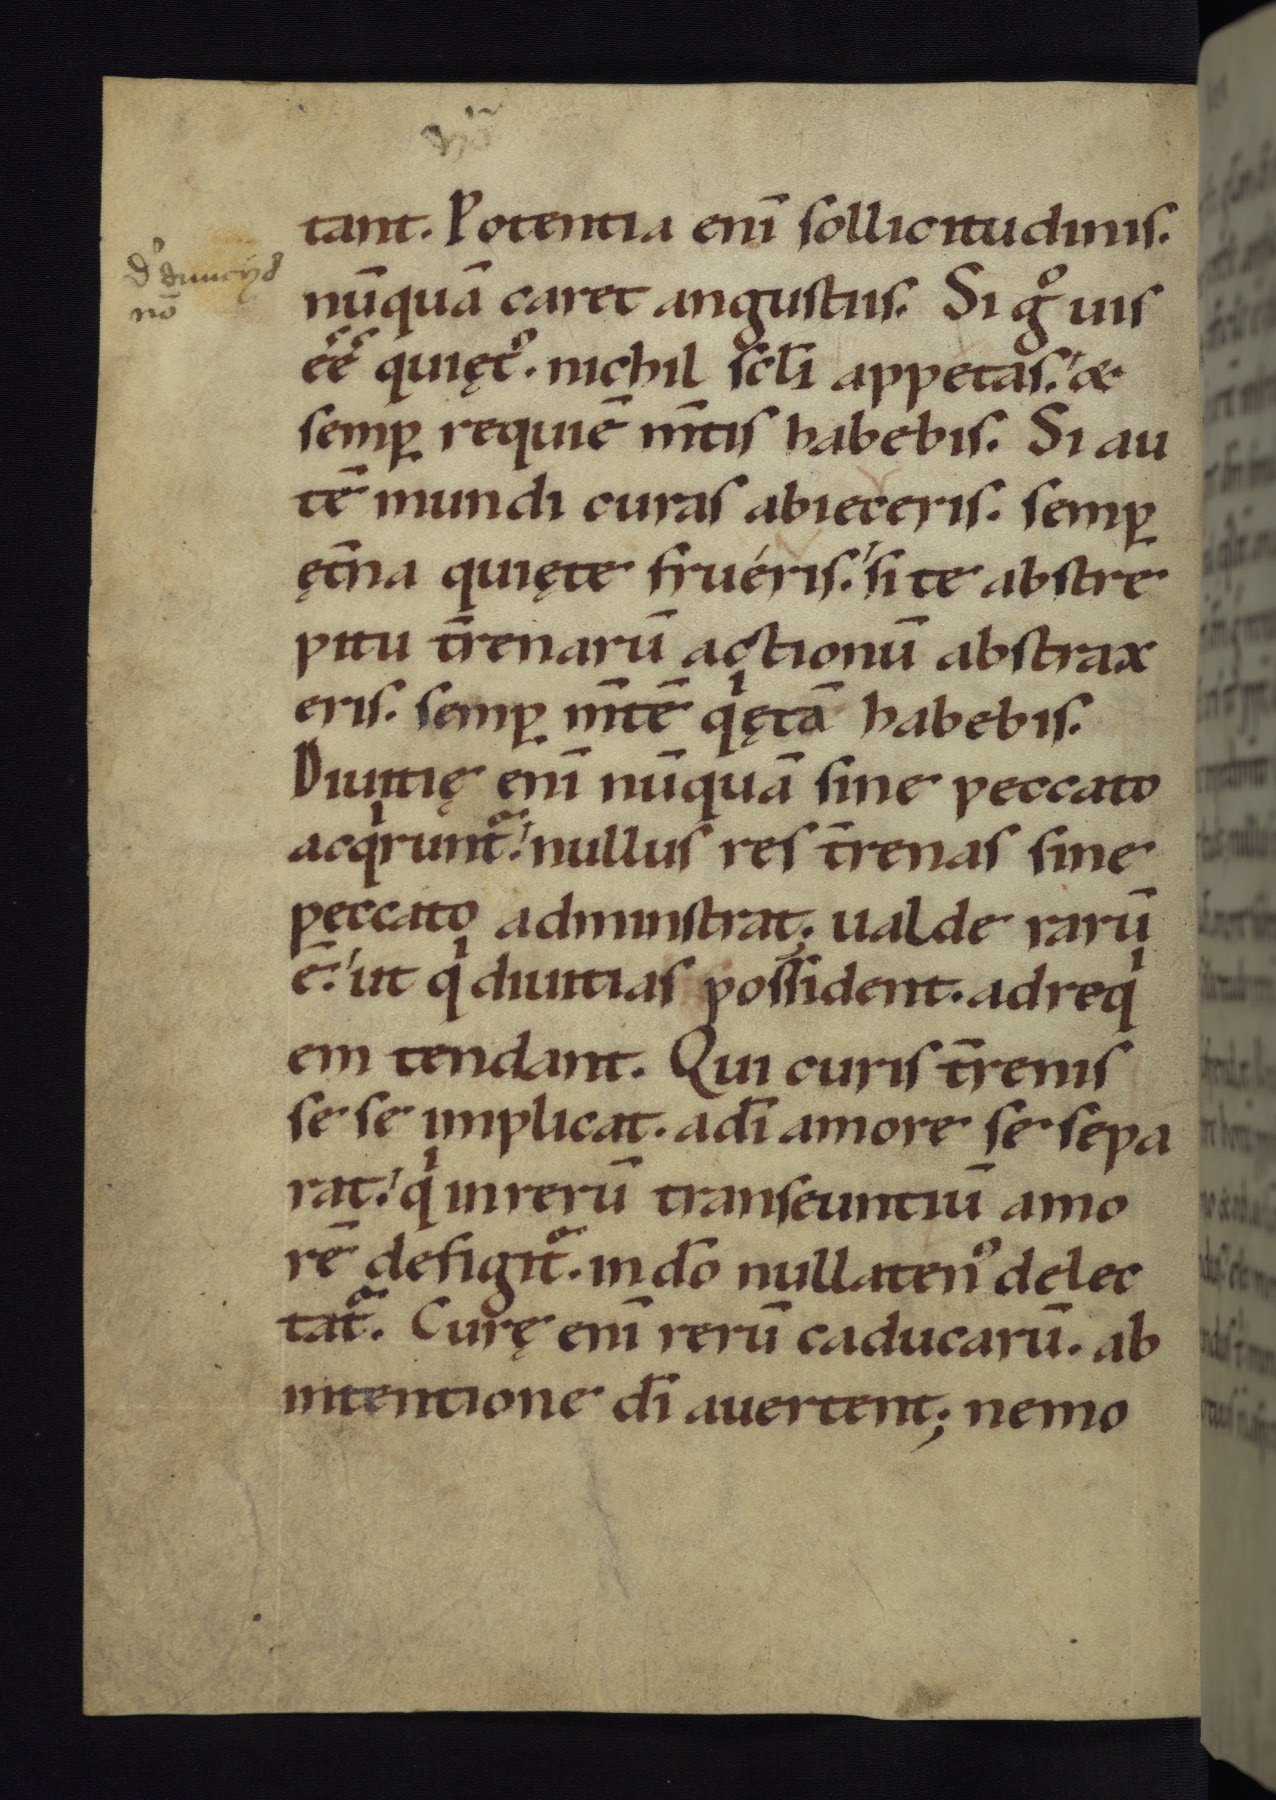 tant. Potentia enī sollicitudinis.
nūquā caret angustiis. Si gͦ uis
ēē quięt᾿. nichil scl̄i appetas. &
semꝑ requiē m̄tis habebis. Si au
tē mundi curas abieceris. semꝑ
ęt̄na quięte frueris. si te abstre
pitu t̄renarū actionū abstrax
eris. semꝑ m̄tē qͥętā habebis.
Diuitię enī nūquā sine peccato
acqͥrunt᾿. nullus res t̄renas sine
peccato administrat; ualde rarū
ē. ut qͥ diuitias possident. adreqͥ
em tendant. Qui curis t̄renis
se se implicat. adī amore se sepa
rat. qͥ inrerū transeuntiū amo
rē defigit᾿. indō nullatenꝰ delec
tat᾿. Curę enī rerū caducarū. ab
intentione dī auertent; nemo